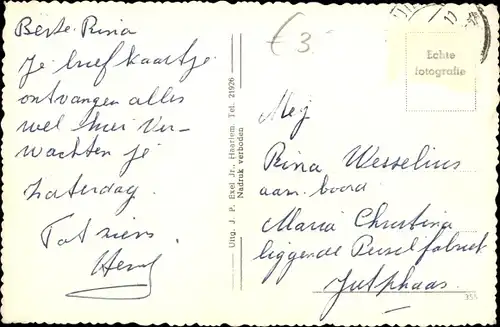 Beste Rina
Je briefkaartje
ontvangen alles
wel hier Ver-
wachten je
Zaterdag.
Tot ziens
Uitg. J. P. Exel Jr., Haarlem, Tel. 21926
Nadruk verboden
€3
Echte
fotografie
Mej
Rina Wesselius
aan boord
Maria Christina
liggende
Jutphaas
355